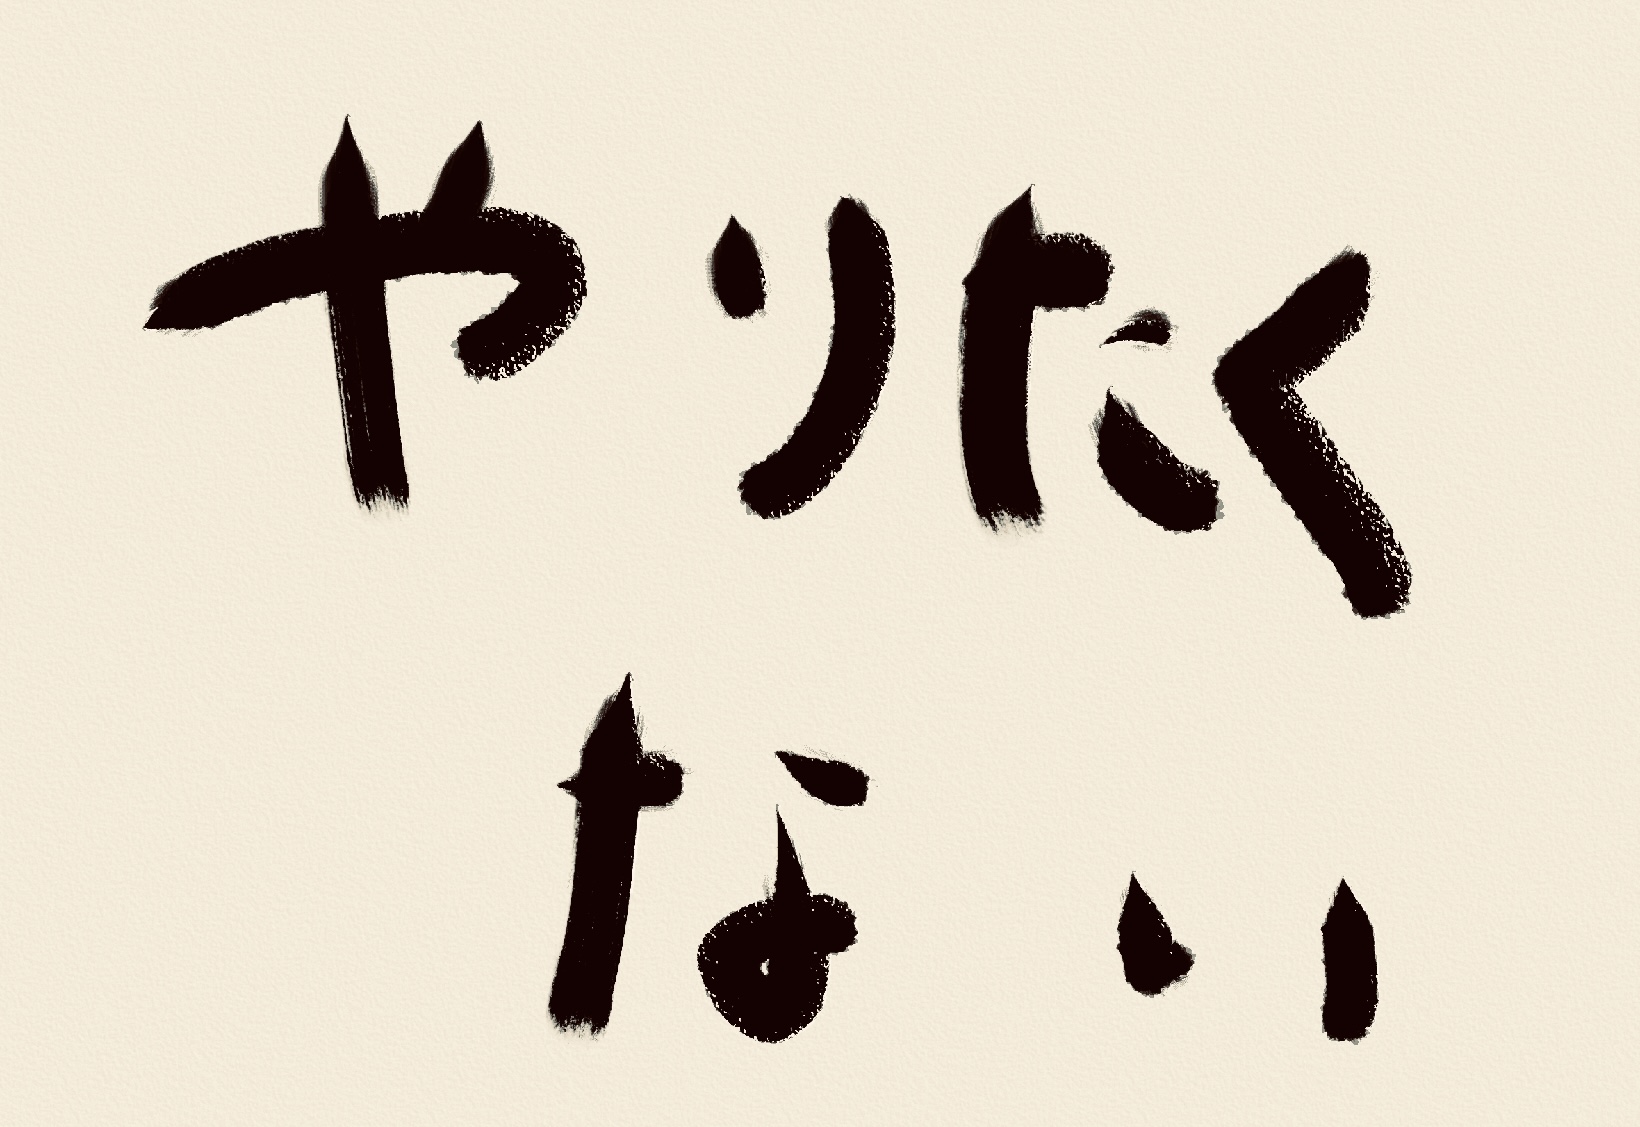 やりたく
ない